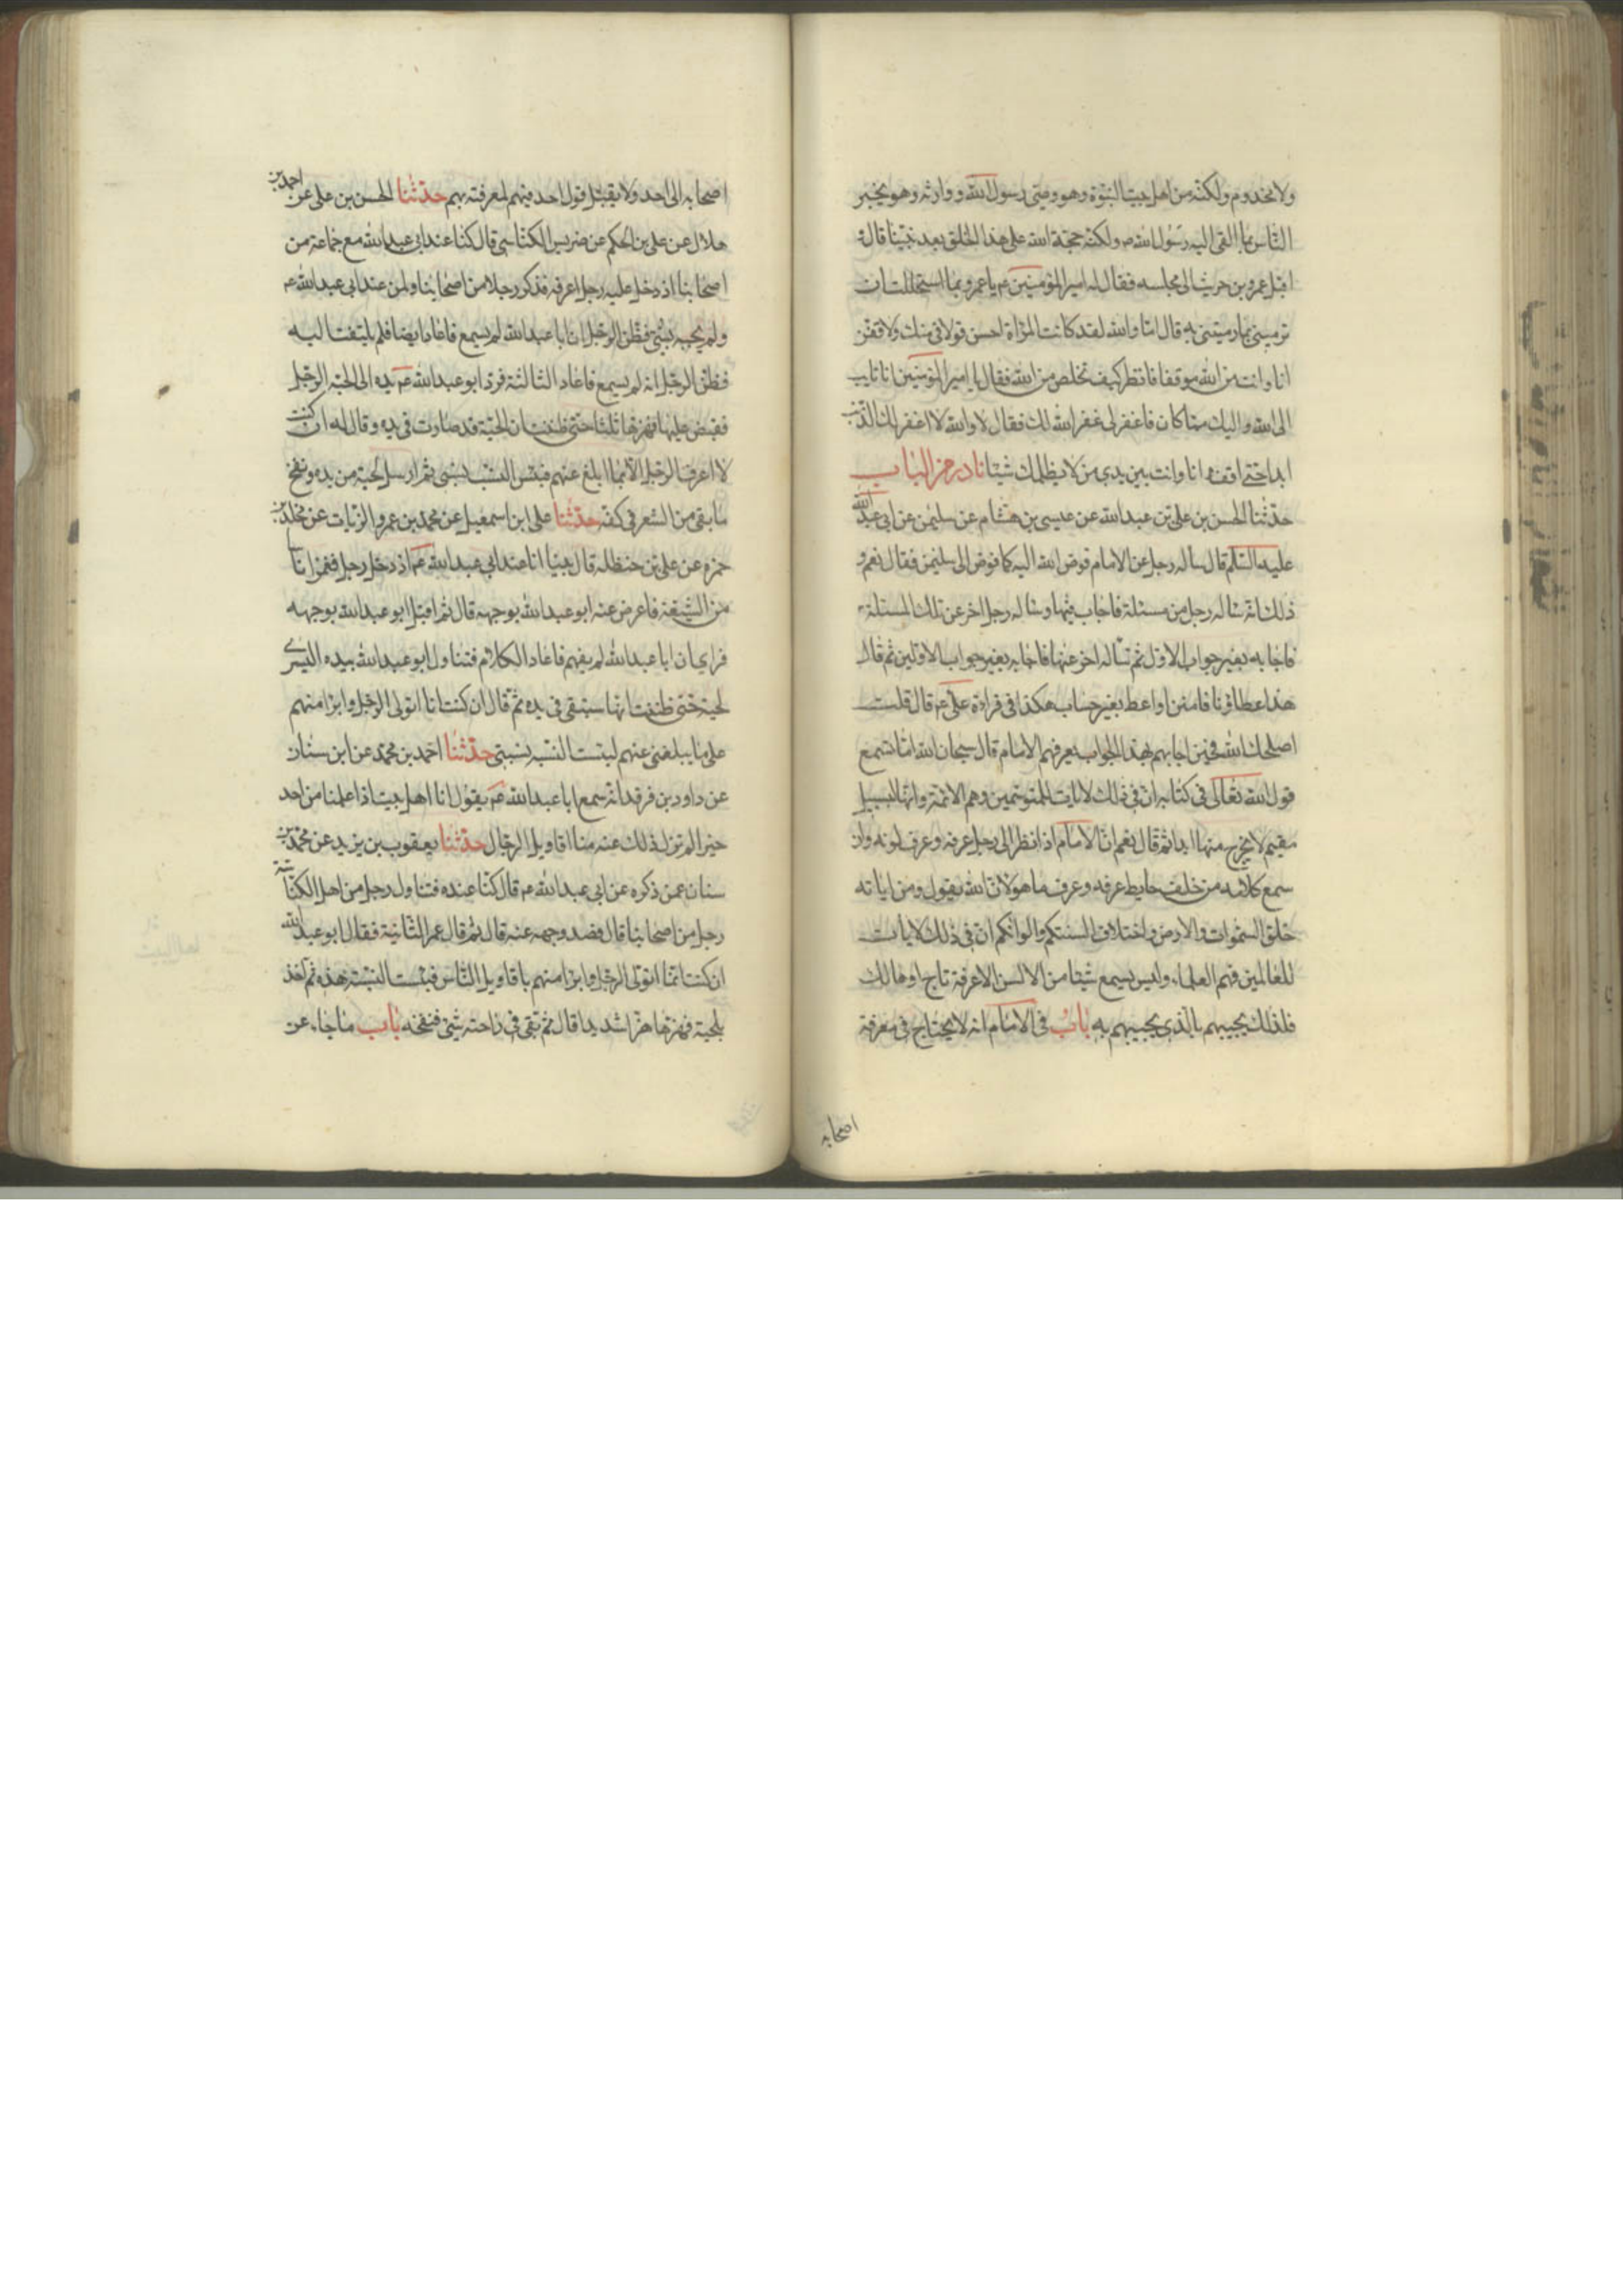 ولا مخدوم ولكنه من اهل بيت النبوة وهو وصى رسول الله ووارثه وهو يخبر
الناس بما القى اليه رسول الله ص ولكنه حجة الله على هذا الخلق بعد نبينا قال و
اقبل عمرو بن حريث الى مجلسه فقال له امير المؤمنين ع يا عمرو بما استحللت ان
ترمينى بما رميتنى به قال اما والله لقد كانت المراة احسن قولا فى منك ولاقفن
انا وانت من الله موقفا فانظر كيف تخلص من الله فقال يا امير المؤمنين انا تايب
الى الله واليك مما كان فاغفر لى غفر الله لك فقال لا والله لا اغفر لك الذنب
ابدا حتى اقف انا وانت بين يدى من لا يظلمك شيئا نادر من الباب
حدثنا الحسن بن على بن عبد الله عن عيسى بن هشام عن سليمن عن ابى عبد الله
عليه السلم قال ساله رجل عن الامام فوض الله اليه كما فوض الى سليمن فقال نعم و
ذلك انه ساله رجل من مسئلة فاجاب فيها وساله رجل اخر عن تلك المسئلة
فاجابه بغير جواب الاول ثم ساله اخر عنها فاجابه بغير جواب الاولين ثم قال
هذا عطاؤنا فامنن او اعط بغير حساب هكذا فى قراءة على ع قال قلت
اصلحك الله فحين اجابهم بهذا الجواب يعرفهم الامام قال سبحان الله اما تسمع
قول الله تعالى فى كتابه ان فى ذلك لايات للمتوسمين وهم الائمة وانها لبسبيل
مقيم لا يخرج منها ابدا ثم قال نعم ان الامام اذا نظر الى رجل عرفه وعرف لونه وان
سمع كلامه من خلف حايط عرفه وعرف ما هو لان الله يقول ومن اياته
خلق السموات والارض واختلاف السنتكم والوانكم ان فى ذلك لايات
للعالمين فهم العلماء وليس يسمع شيئا من الالسن الا عرفه ناج او هالك
فلذلك يجيبهم بالذى يجيبهم به باب فى الامام انه لا يحتاج فى معرفة
اصحابه
اصحابه الى احد ولا يقبل قول احد فيهم لمعرفته بهم حدثنا الحسن بن على عن احمد بن
هلال عن على بن الحكم عن ضريس الكناسى قال كنا عند ابى عبد الله مع جماعة من
اصحابنا اذ دخل عليه رجل اعرفه فذكر رجلا من اصحابنا ولمن عند ابى عبد الله ع
ولم يجبه بشئ فظن الرجل ان ابا عبد الله لم يسمع فاعاد ايضا فلم يلتفت اليه
فظن الرجل انه لم يسمع فاعاد الثالثة فرد ابو عبد الله ع يده الى لحية الرجل
فقبض عليها فهزها ثلثا حتى ظننت ان لحيته قد صارت فى يده وقال له ان كنت
لا اعرف الرجل الا بما ابلغ عنهم فبئس النسب نسبى ثم ارسل لحيته من يده ونفخ
ما بقى من الشعر فى كفه حدثنا على ابن اسمعيل عن محمد بن عمرو الزيات عن مخلد بن
حمزه عن على بن حنظله قال بينا انا عند ابى عبد الله ع اذ دخل رجل فغمز اناسا
من الشيعة فاعرض عنه ابو عبد الله بوجهه قال ثم اقبل ابو عبد الله بوجهه
فراى ان ابا عبد الله لم يفهم فاعاد الكلام فتناول ابو عبد الله بيده اليسرى
لحيته حتى ظننت انها ستبقى فى يده ثم قال ان كنت انا اتولى الرجل وابرا منهم
على ما يبلغنى عنهم لبئست النسبة نسبتى حدثنا احمد بن محمد عن ابن سنان
عن داود بن فرقد انه سمع ابا عبد الله ع يقول انا اهل بيت اذا علمنا من احد
خيرا لم تزل ذلك عنه منا اقاويل الرجال حدثنا يعقوب بن يزيد عن محمد بن
سنان عمن ذكره عن ابى عبد الله ع قال كنا عنده فتناول رجل من اهل الكناسة
رجل من اصحابنا قال فصد وجهه عنه قال ثم قال عمر الثانية فقال ابو عبد الله
ان كنت انما اتولى الرجل وابرا منهم باقاويل الناس فبئست النسبة هذه ثم اخذ
بلحيته فهزها هزا شديدا قال ثم بقى فى راحته شئ فنفخه باب ما جاء عن